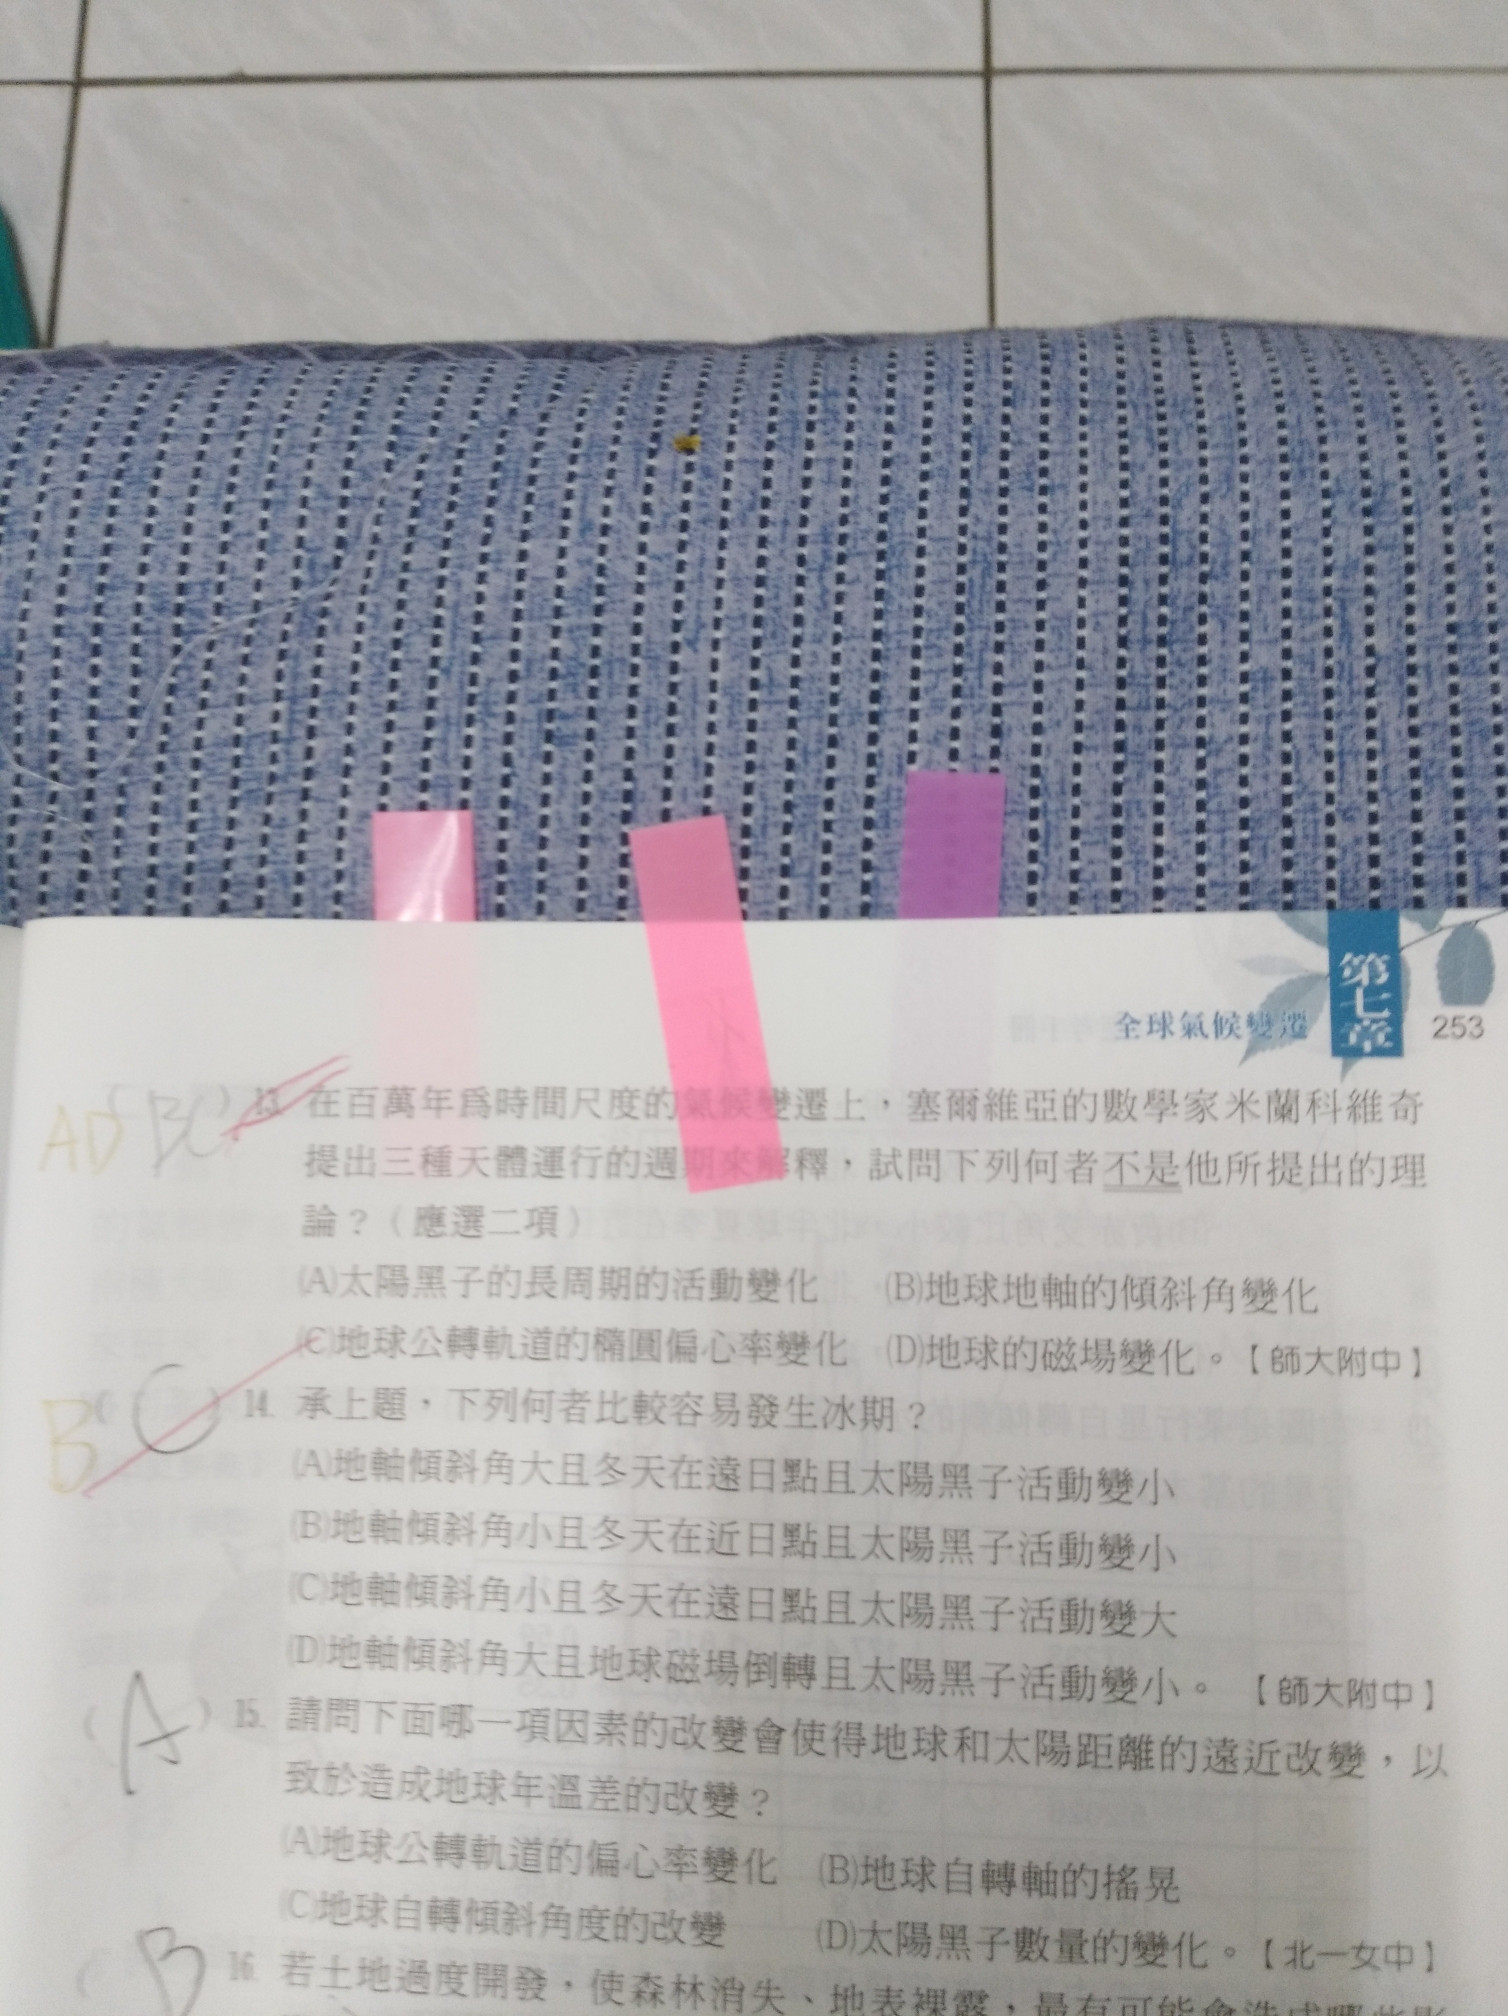 全球氣候變遷 第七章 253
AD ( BC ) 13. 在百萬年為時間尺度的氣候變遷上，塞爾維亞的數學家米蘭科維奇
提出三種天體運行的週期來解釋，試問下列何者不是他所提出的理
論？（應選二項）
(A)太陽黑子的長周期的活動變化 (B)地球地軸的傾斜角變化
(C)地球公轉軌道的橢圓偏心率變化 (D)地球的磁場變化。【師大附中】
B ( C ) 14. 承上題，下列何者比較容易發生冰期？
(A)地軸傾斜角大且冬天在遠日點且太陽黑子活動變小
(B)地軸傾斜角小且冬天在近日點且太陽黑子活動變小
(C)地軸傾斜角小且冬天在遠日點且太陽黑子活動變大
(D)地軸傾斜角大且地球磁場倒轉且太陽黑子活動變小。【師大附中】
( A ) 15. 請問下面哪一項因素的改變會使得地球和太陽距離的遠近改變，以
致於造成地球年溫差的改變？
(A)地球公轉軌道的偏心率變化 (B)地球自轉軸的搖晃
(C)地球自轉傾斜角度的改變 (D)太陽黑子數量的變化。【北一女中】
( B 16. 若土地過度開發，使森林消失、地表裸露，最有可能會造成哪些